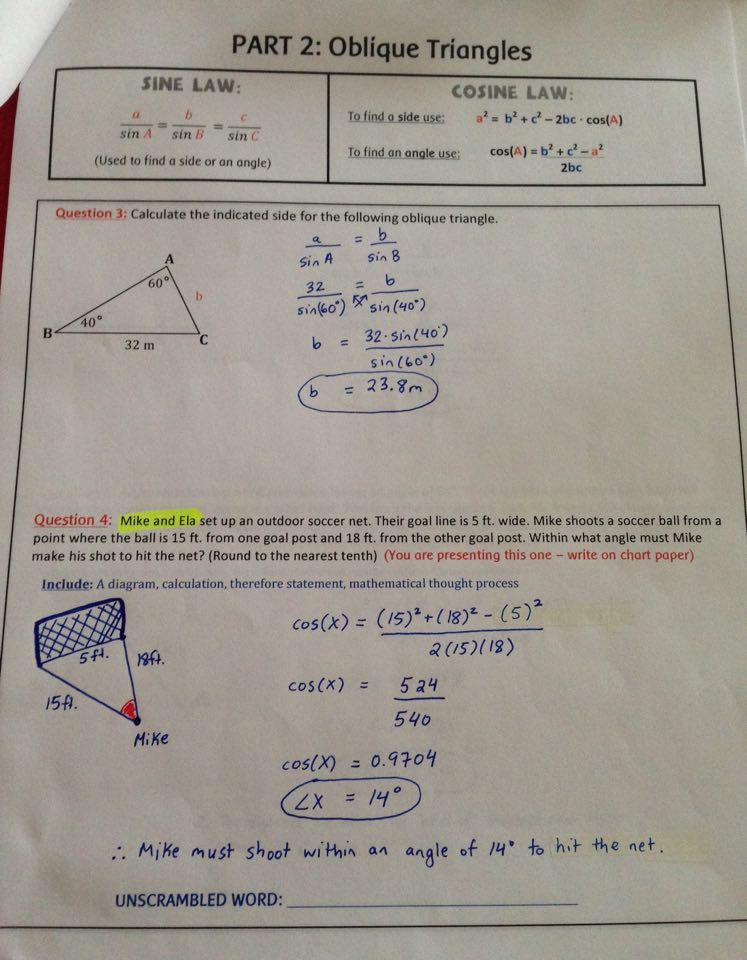 PART 2: Oblique Triangles
SINE LAW:
a/sin A = b/sin B = c/sin C
(Used to find a side or an angle)
COSINE LAW:
To find a side use: a² = b² + c² – 2bc · cos(A)
To find an angle use: cos(A) = b² + c² – a²
2bc
Question 3: Calculate the indicated side for the following oblique triangle.
A
60°
b
B
40°
C
32 m
a/sin A = b/sin B
32/sin(60°) = b/sin(40°)
b = 32·sin(40°)/sin(60°)
b = 23.8m
Question 4: Mike and Ela set up an outdoor soccer net. Their goal line is 5 ft. wide. Mike shoots a soccer ball from a
point where the ball is 15 ft. from one goal post and 18 ft. from the other goal post. Within what angle must Mike
make his shot to hit the net? (Round to the nearest tenth) (You are presenting this one – write on chart paper)
Include: A diagram, calculation, therefore statement, mathematical thought process
5ft.
18ft.
15ft.
Mike
cos(X) = (15)²+(18)² - (5)²
2(15)(18)
cos(X) = 524
540
cos(X) = 0.9704
∠X = 14°
∴ Mike must shoot within an angle of 14° to hit the net.
UNSCRAMBLED WORD: